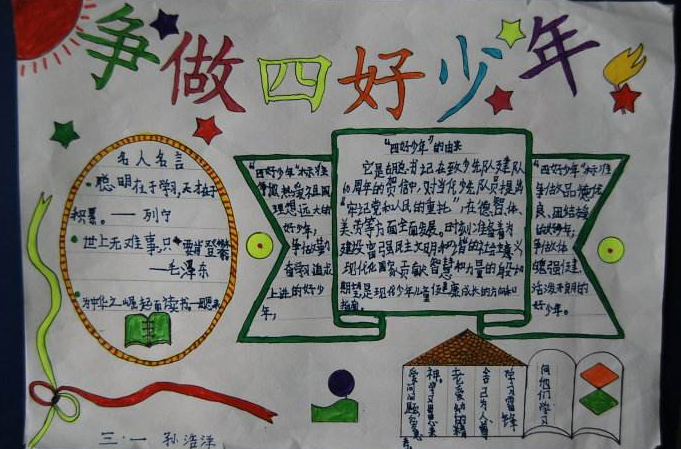 争做四好少年
名人名言
聪明在于学习,天才在于
积累。——列宁
世上无难事,只要肯登攀
——毛泽东
为中华之崛起而读书。—周恩来
"四好少年"标准
争做热爱祖国
理想远大的
好少年,
争做勤
奋学习追求
上进的好少
年,
"四好少年"的由来
它是胡总书记在致少先队建队
60周年的贺信中,对当代少先队员提出
"牢记党和人民的重托",在德、智、体、
美、劳等方面全面发展。时刻准备着为
建设富强民主文明和谐的社会主义
现代化国家贡献智慧和力量的
期望,是现代少年儿童健康成长的方向和
指南。
"四好少年"标准
争做品德优
良、团结友
的好少年,
争做体
魄强健、
活泼开朗的
好少年。
向他们学习
学习雷锋
舍己为人尊
老爱幼的精
神。
三·一 孙浩洋